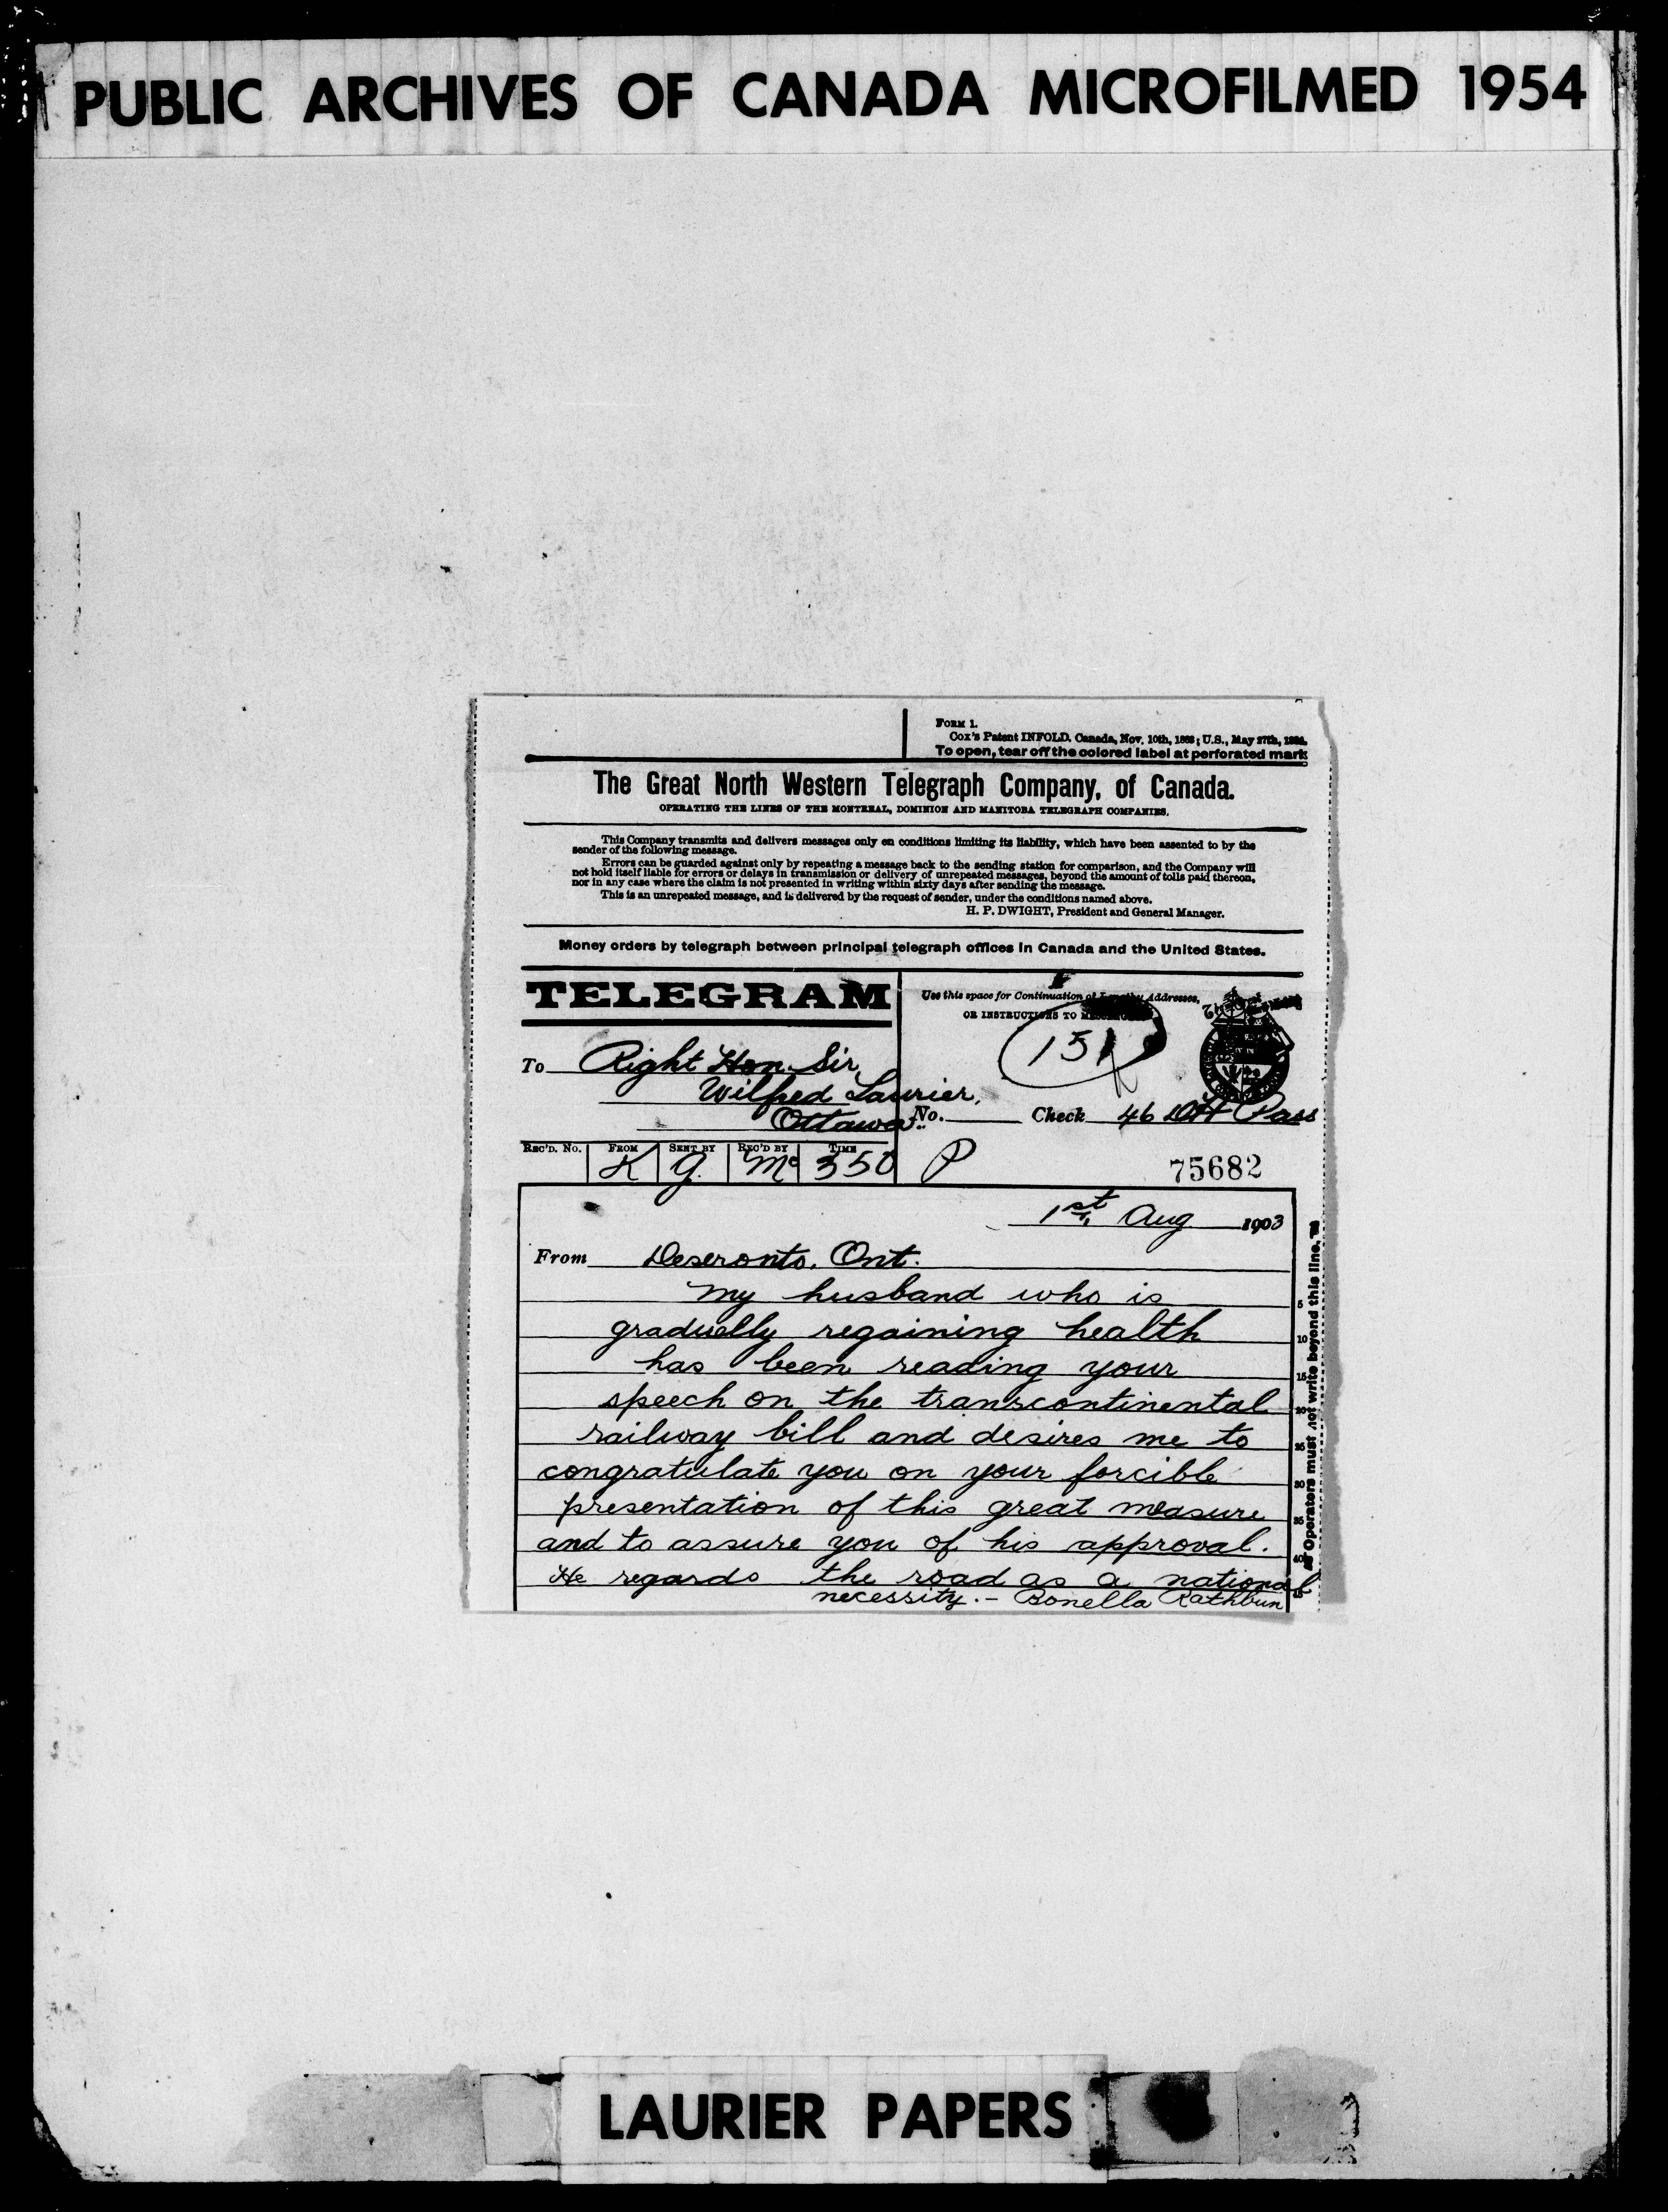 PUBLIC ARCHIVES OF CANADA MICROFILMED 1954
FORM 1.
Cox's Patent INFOLD. Canada, Nov. 10th, 1888; U.S., May 27th,
To open, tear off the colored label at perforated mark
The Great North Western Telegraph Company, of Canada.
OPERATING THE LINES OF THE MONTREAL, DOMINION AND MANITOBA TELEGRAPH COMPANIES.
This Company transmits and delivers messages only on conditions limiting its liability, which have been assented to by the
sender of the following message.
Errors can be guarded against only by repeating a message back to the sending station for comparison, and the Company will
not hold itself liable for errors or delays in transmission or delivery of unrepeated messages, beyond the amount of tolls paid thereon,
nor in any case where the claim is not presented in writing within sixty days after sending the message.
This is an unrepeated message, and is delivered by the request of sender, under the conditions named above.
H. P. DWIGHT, President and General Manager.
Money orders by telegraph between principal telegraph offices in Canada and the United States.
TELEGRAM
Use this space for Continuation of Addresses,
OR INSTRUCTIONS TO
151
To Right Hon. Sir
Wilfred Laurier,
Ottawa.
No. Check 46 DH Pass
REC'D. No. FROM SENT BY REC'D BY TIME
K G. Mc 350 P
75682
1st, Aug 1903
From Deseronto. Ont.
My husband who is
gradually regaining health
has been reading your
speech on the transcontinental
railway bill and desires me to
congratulate you on your forcible
presentation of this great measure
and to assure you of his approval.
He regards the road as a national
necessity. - Bonella Rathbun
5
10
15
20
25
30
35
40
45
Operators must not write beyond this line.
LAURIER PAPERS